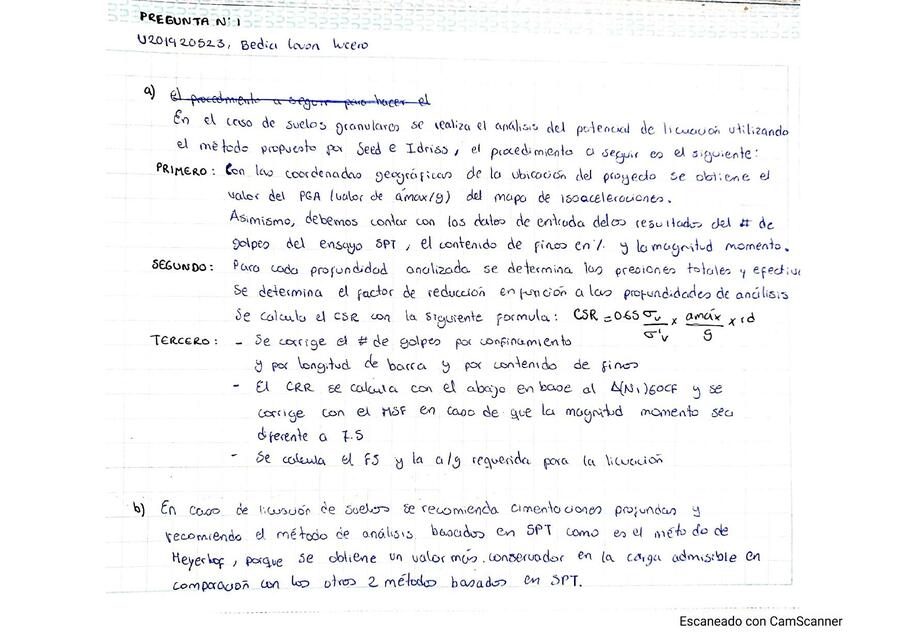 PREGUNTA N° 1
U201920523, Bedia Lucero
a) El procedimiento a seguir para hacer el
En el caso de suelos granulares se realiza el análisis del potencial de licuación utilizando
el método propuesto por Seed e Idriss, el procedimiento a seguir es el siguiente:
PRIMERO: Con las coordenadas geográficas de la ubicación del proyecto se obtiene el
valor del PGA (valor de ámax/g) del mapa de isoaceleraciones.
Asimismo, debemos contar con los datos de entrada delos resultados del # de
golpes del ensayo SPT, el contenido de finos en % y la magnitud momento.
SEGUNDO: Para cada profundidad analizada se determina las presiones totales y efectiva
Se determina el factor de reducción en función a las profundidades de análisis
Se calcula el CSR con la siguiente formula: CSR = 0.65 σv/σ'v x amáx/g x rd
TERCERO: - Se corrige el # de golpes por confinamiento
y por longitud de barra y por contenido de finos
- El CRR se calcula con el abajo en base al Δ(N1)60CF y se
corrige con el MSF en caso de que la magnitud momento sea
diferente a 7.5
- Se calcula el FS y la a/g requerida para la licuación
b) En caso de licuación de suelos se recomienda cimentaciones profundas y
recomiendo el método de análisis basados en SPT como es el método de
Meyerhof, porque se obtiene un valor más conservador en la carga admisible en
comparación con los otros 2 métodos basados en SPT.
Escaneado con CamScanner